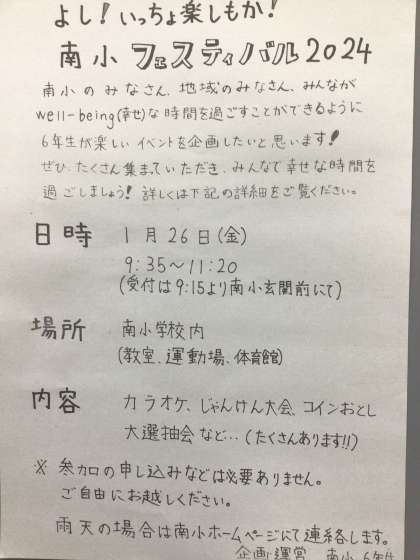 よし！いっちょ楽しもか！
南小フェスティバル2024
南小のみなさん、地域のみなさん、みんなが
well-being(幸せ)な時間を過ごすことができるように
6年生が楽しいイベントを企画したいと思います！
ぜひ、たくさん集まっていただき、みんなで幸せな時間を
過ごしましょう！詳しくは下記の詳細をご覧ください。
日時 1月26日(金)
9:35～11:20
(受付は9:15より南小玄関前にて)
場所 南小学校内
(教室、運動場、体育館)
内容 カラオケ、じゃんけん大会、コインおとし
大選抽会など…(たくさんあります!!)
※参加の申し込みなどは必要ありません。
ご自由にお越しください。
雨天の場合は南小ホームページにて連絡します。
企画・運営 南小6年生